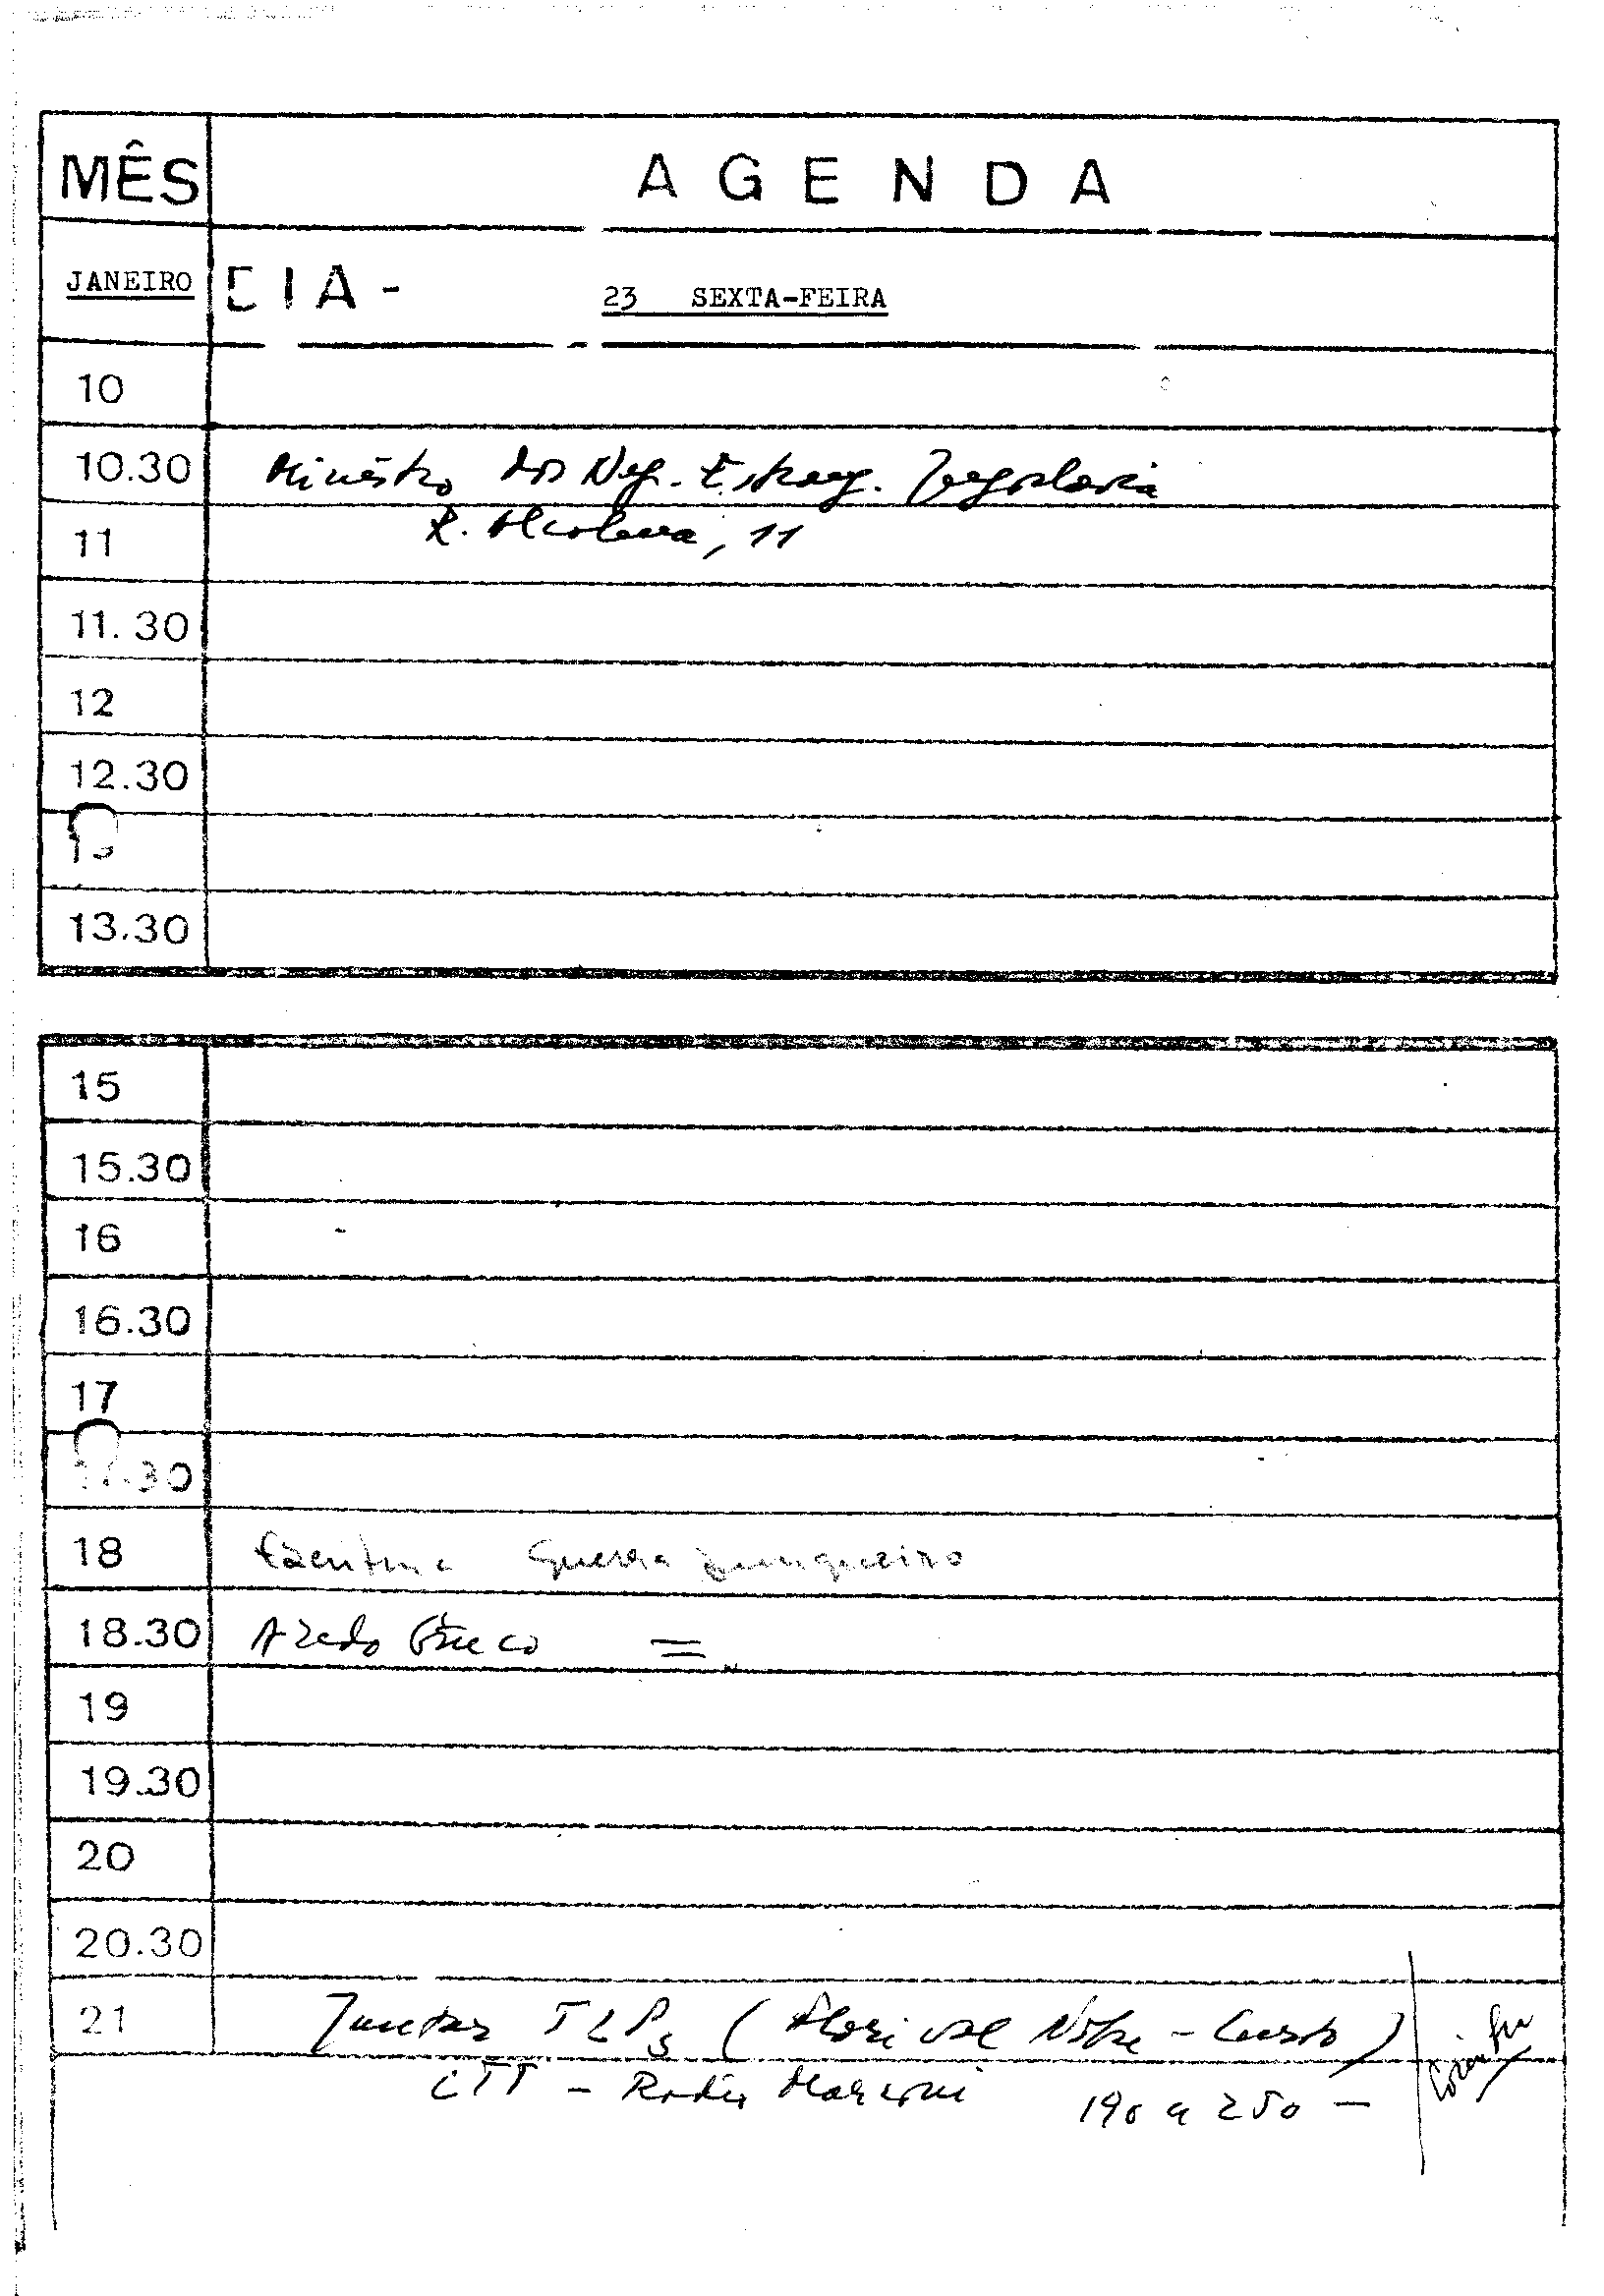 MÊS AGENDA
JANEIRO DIA - 23 SEXTA-FEIRA
10
10.30 Ministro dos Neg. Estrang. Jugoslavia
11 R. Alcolena, 11
11.30
12
12.30
13
13.30
15
15.30
16
16.30
17
17.30
18 Guerra Junqueiro
18.30 Azedo Gneco =
19
19.30
20
20.30
21 Jantar TLPs ( Nobre - Custo )
CTT - Radio Marconi 190 a 250 -